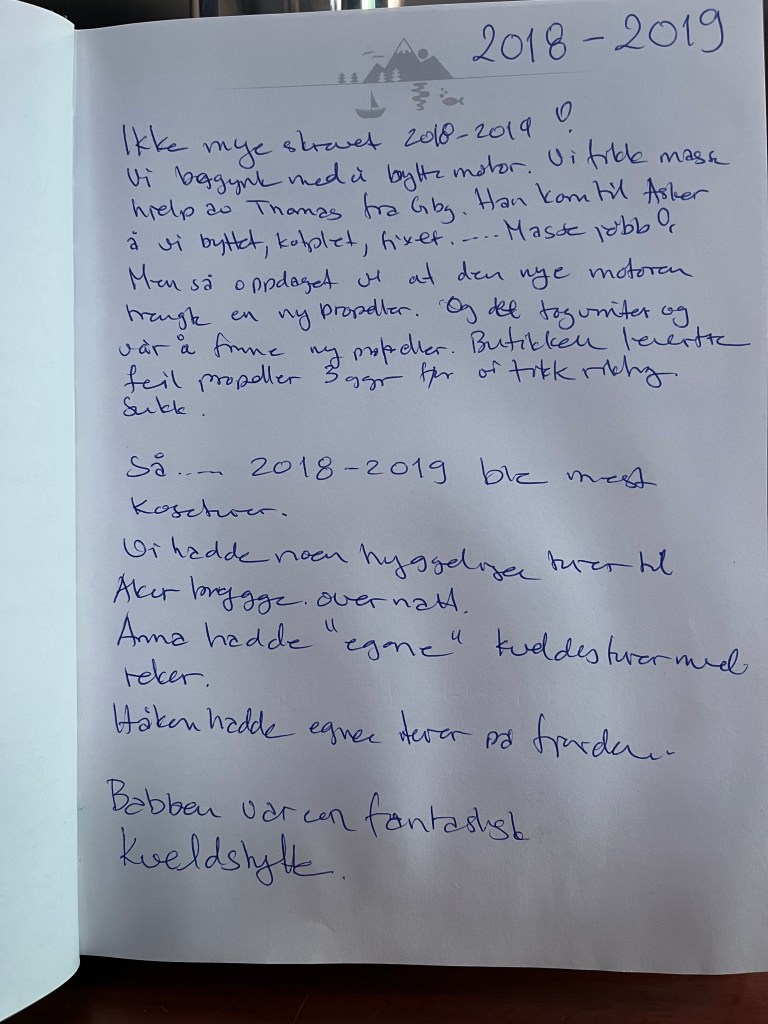 2018-2019
Ikke mye skrevet 2018-2019!
Vi begynte med å bytte motor. Vi fikk masse
hjelp av Thomas fra Gbg. Han kom til Asker
å vi byttet, koblet, fixet. .... Masse jobb!
Men så oppdaget vi at den nye motoren
trengte en ny propeller. Og det tog vinter og
vår å finne ny propeller. Butikken leverte
feil propeller 3 ggr før vi fikk riktig.
Sukk.
Så .... 2018-2019 ble mest
koseturer.
Vi hadde noen hyggelige turer til
Aker brygge. over natt.
Anna hadde "egne" kveldesturer med
reker.
Håken hadde egne turer på fjorden..
Babben var en fantastisk
kveldshytte.